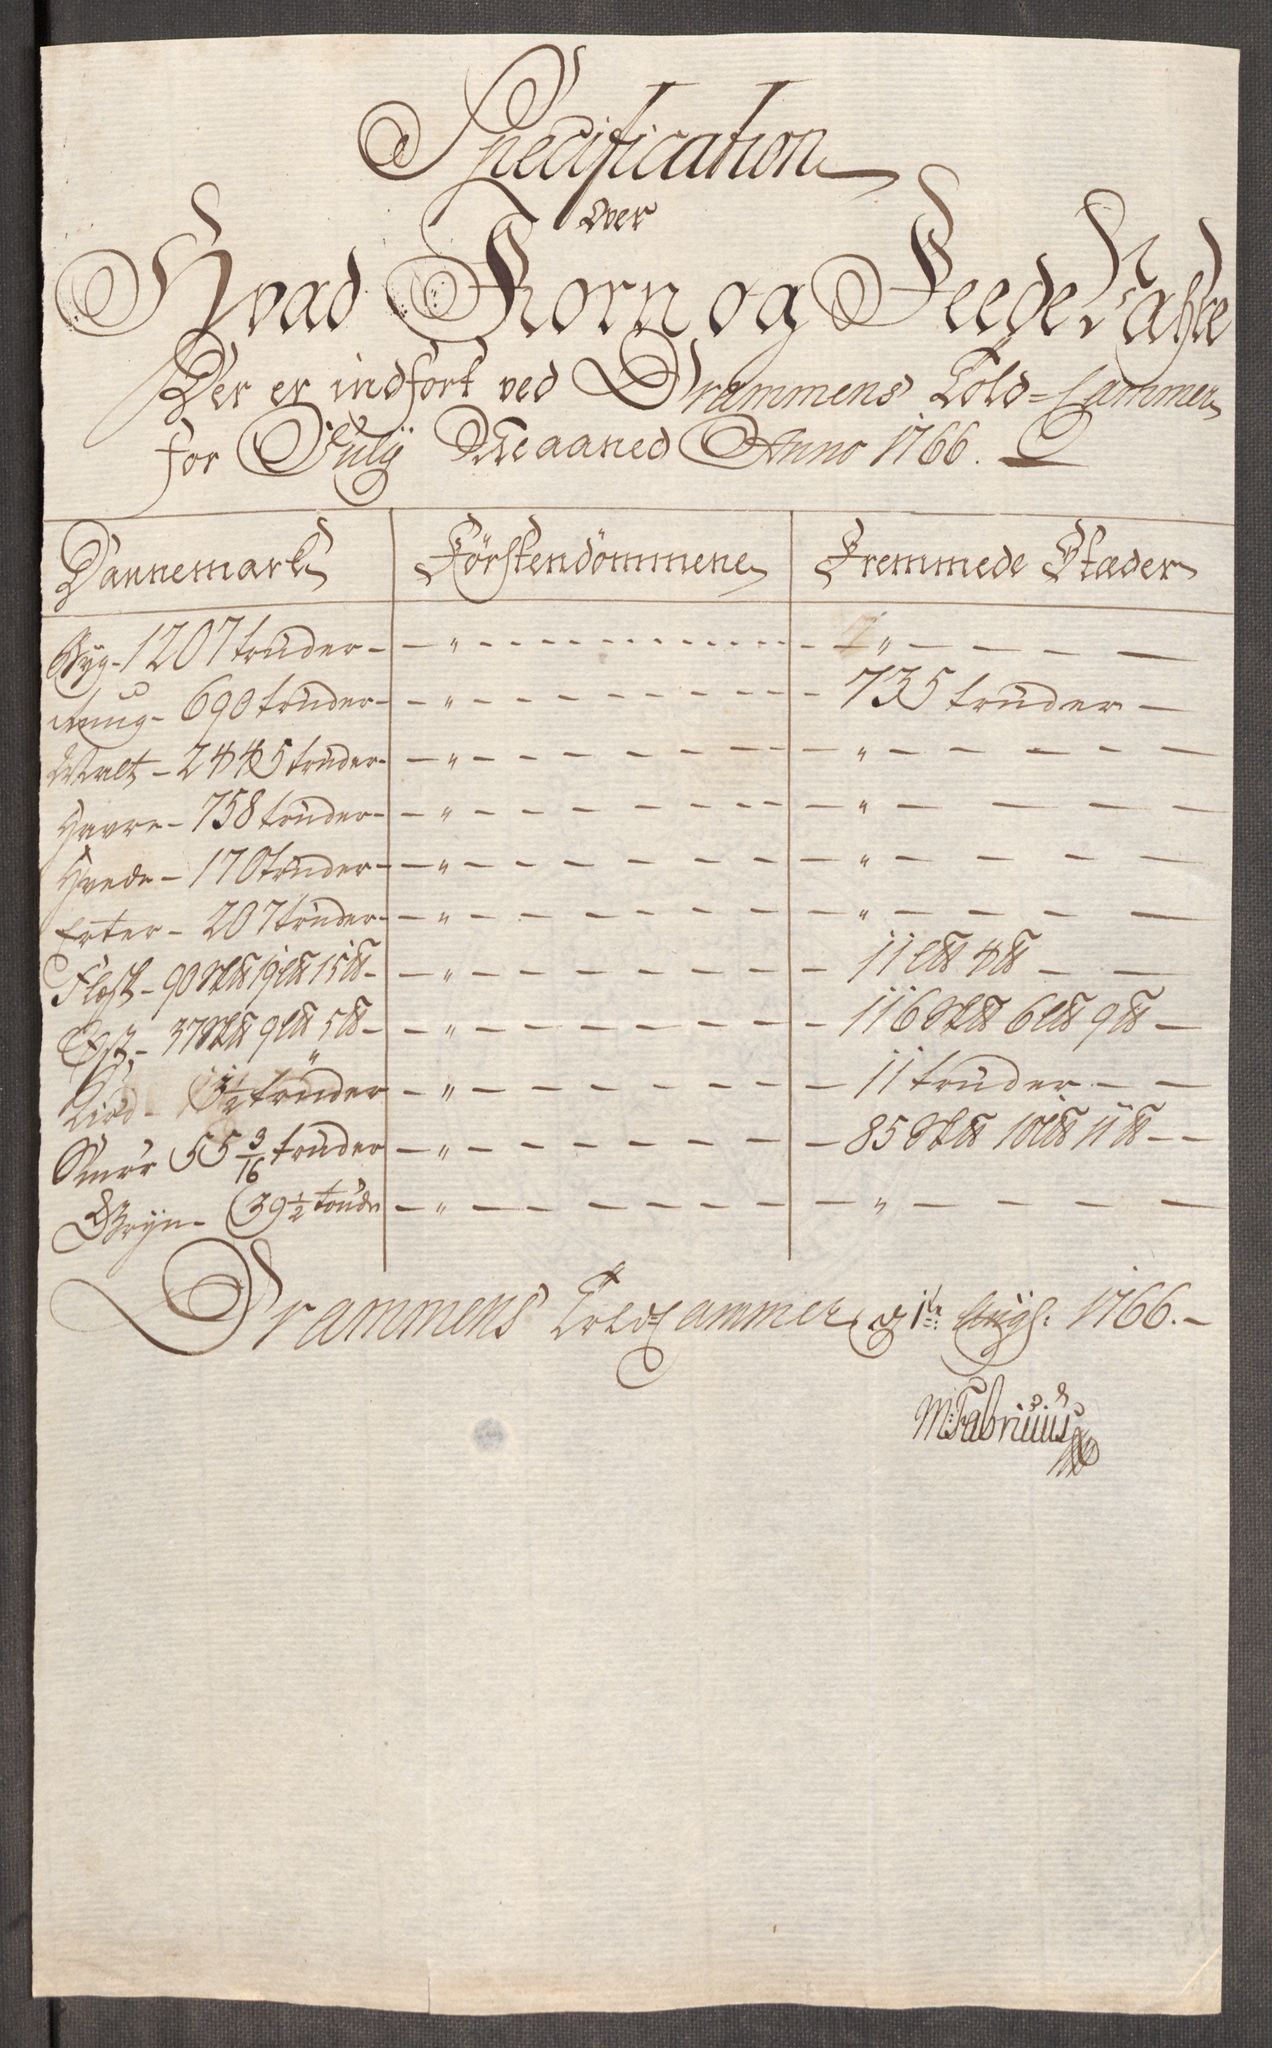 Specification
Over
Hvad Korn og Feede Vahre
Der er indført ved Drammens Told=Cammer
for Julÿ Maaned Anno 1766.
Dannemark Förstendömmene Fremmede Stæder
Byg - 1207 tønder - - " - - "
Rug - 690 tønder - - " - - 735 tønder -
Malt - 2445 tønder - - " - - "
Havre - 758 tønder - - " - - "
Hvede - 170 tønder - - " - - "
Erter - 207 tønder - - " - - "
Flesk - 90 Sk℔ 19 L℔ 15 ℔ - - " - - 11 L℔ 4 ℔ -
Ost - 37 Sk℔ 9 L℔ 5 ℔ - - " - - 116 Sk℔ 6 L℔ 9 ℔ -
Kiød - 1/2 tønder - " - - 11 tønder - -
Smør 55 3/16 tønder - " - - 85 Sk℔ 10 L℔ 11 ℔ - -
Gryn - 39 1/2 tønde - " - - "
Drammens Told=Cammer d 1te Augs. 1766. -
M: Fabricius